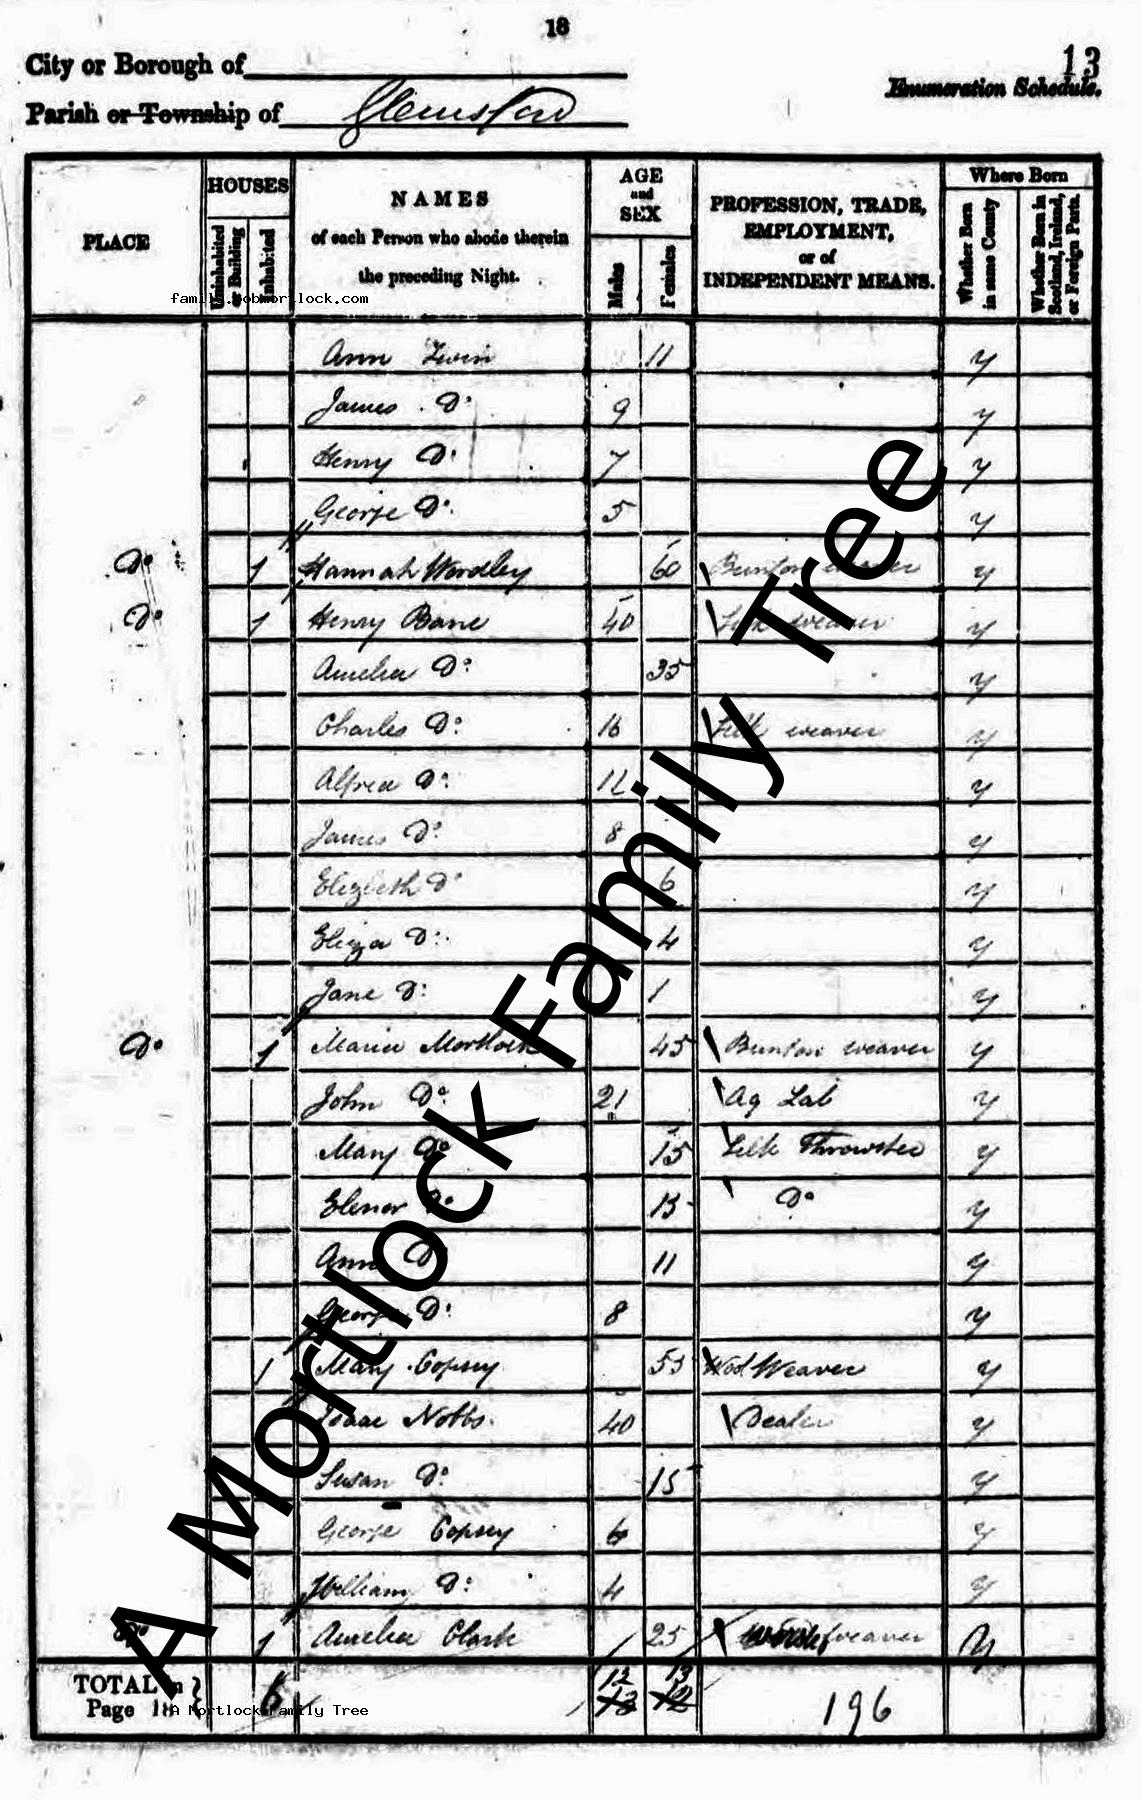 18
City or Borough of
13
Enumeration Schedule.
Parish or Township of Glemsford
PLACE
HOUSES
Uninhabited or Building
Inhabited
NAMES
of each Person who abode therein
the preceding Night.
AGE
and
SEX
Males
Females
PROFESSION, TRADE,
EMPLOYMENT,
or of
INDEPENDENT MEANS.
Where Born
Whether Born in same County
Whether Born in Scotland, Ireland, or Foreign Parts.
Ann 11 y
James Do 9 y
Henry Do 7 y
George Do 5 y
Do 1 Hannah Wordley 60 Bunton weaver y
Do 1 Henry Bane 40 Silk weaver y
Amelia Do 35 y
Charles Do 16 Silk weaver y
Alfred Do 12 y
James Do 8 y
Elizbeth Do 6 y
Eliza Do 4 y
Jane Do 1 y
Do 1 Maria Mortlock 45 Bunton weaver y
John Do 21 Ag Lab y
Mary Do 15 Silk Throwster y
Elenor Do 13 Do y
Ann Do 11 y
George Do 8 y
1 Mary Copsey 55 Weaver y
Isaac Nobbs 40 Dealer y
Susan Do 15 y
George Copsey 6 y
William Do 4 y
Do 1 Amelia Clark 25 weaver y
TOTAL in
Page 18
6
12 13
13 12
196
A Mortlock Family Tree
A Mortlock Family Tree